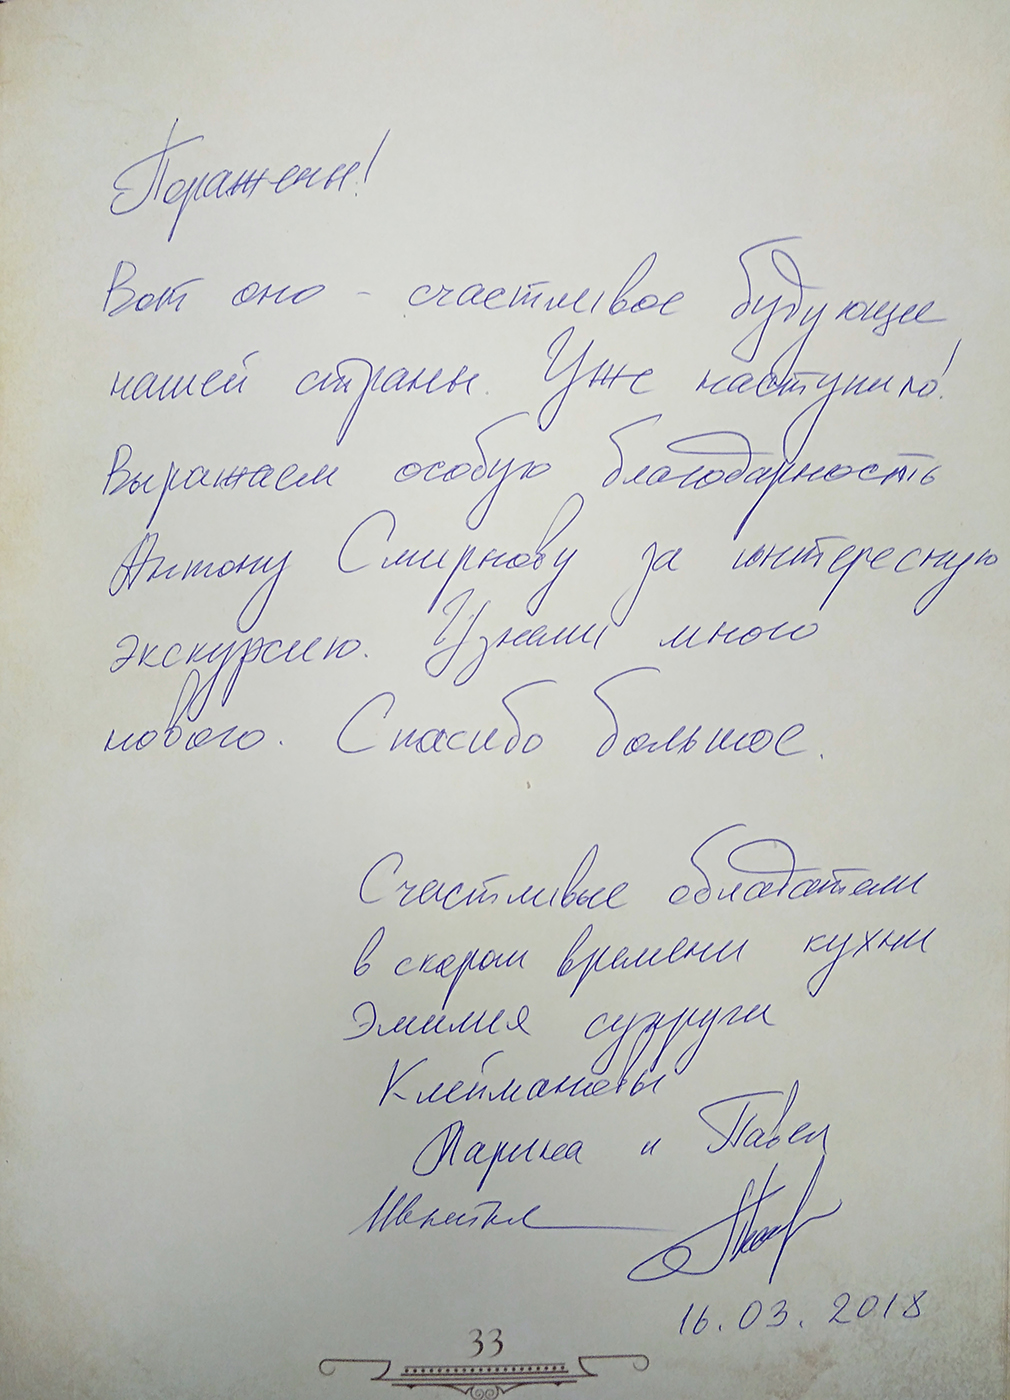 Поражены!
Вот оно - счастливое будующее
нашей страны. Уже наступило!
Выражаем особую благодарность
Антону Смирнову за интересную
экскурсию. Узнали много
нового. Спасибо большое.
Счастливые обладатели
в скором времени кухни
Эмилия супруги
Клеймановы
Марина и Павел
16.03.2018
33